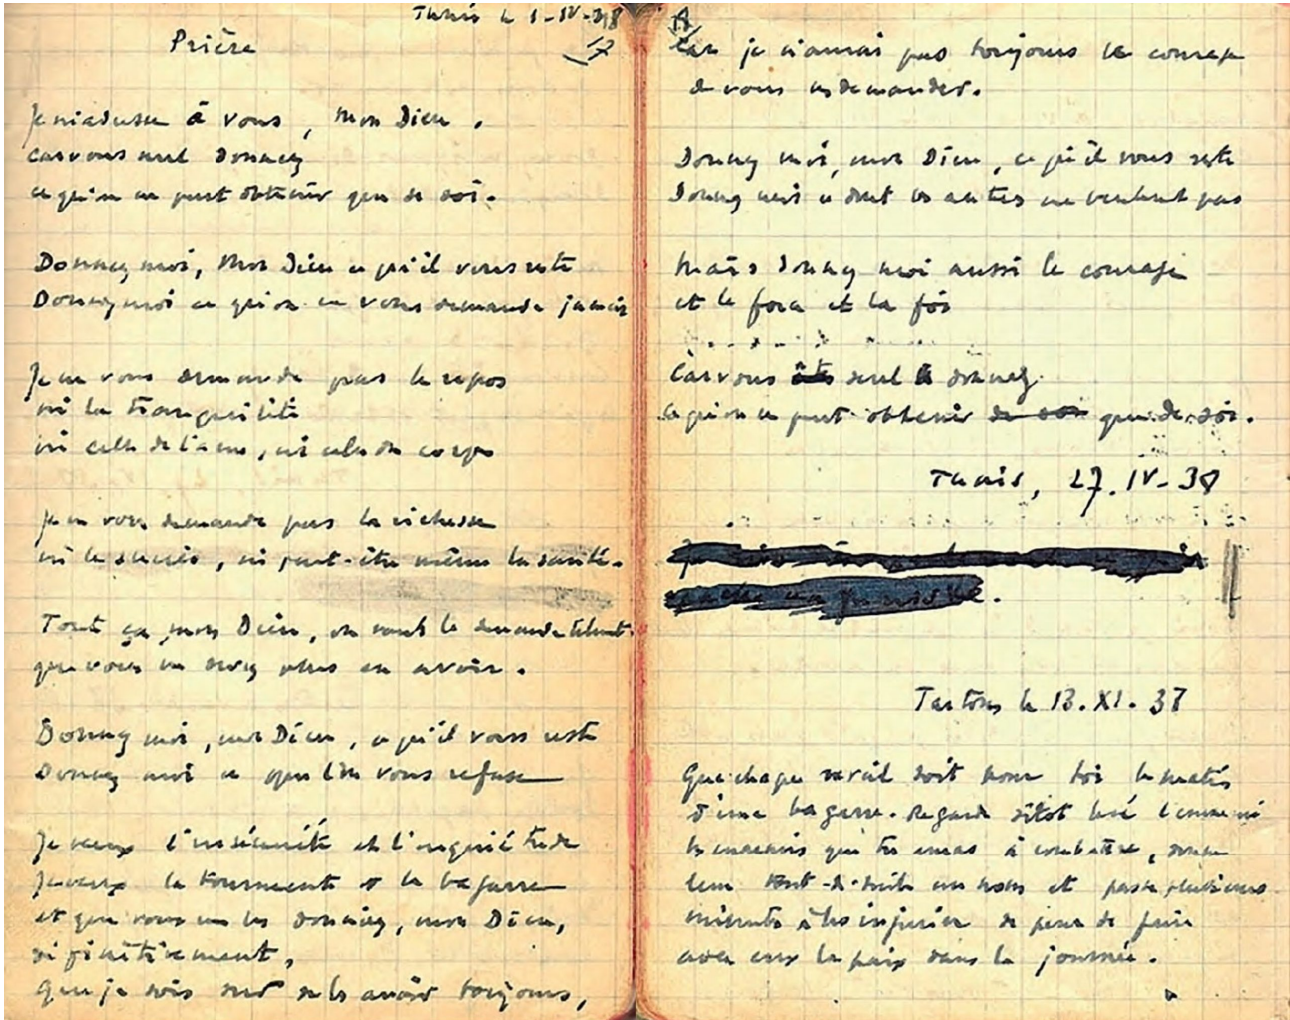 Tunis le 1-IV-38
Prière
Je m'adresse à vous, mon Dieu.
car vous seul donnez
ce qu'on ne peut obtenir que de soi.
Donnez moi, mon Dieu ce qu'il vous reste
Donnez moi ce qu'on ne vous demande jamais
Je ne vous demande pas le repos
ni la tranquilité
ni celle de l'ame, ni celle du corps
Je ne vous demande pas la richesse
ni le succès, ni peut-être même la santé.
Tout ça, mon Dieu, on vous le demande tellement
que vous ne devez plus en avoir.
Donnez moi, mon Dieu, ce qu'il vous reste
Donnez moi ce que l'on vous refuse
Je veux l'insécurité et l'inquiétude
Je veux la tourmente et la bagarre
et que vous me les donniez, mon Dieu,
définitivement,
que je sois sur de les avoir toujours,
Car je n'aurai pas toujours le courage
de vous les demander.
Donnez moi, mon Dieu, ce qu'il vous reste
Donnez moi ce dont les autres ne veulent pas
mais donnez moi aussi le courage
et la force et la foi
Car vous êtes seul à donnez
ce qu'on ne peut obtenir de soi que de soi.
Tunis, 27.IV-38
Tartous le 13.XI.38
Que chaque réveil soit pour toi le matin
d'une bagarre. Regarde sitôt levé l'ennemi
les ennemis que tu auras à combattre, donne
leur tout-de-suite un nom et passe plusieurs
minutes à les injurier de peur de faire
avec eux la paix dans la journée.